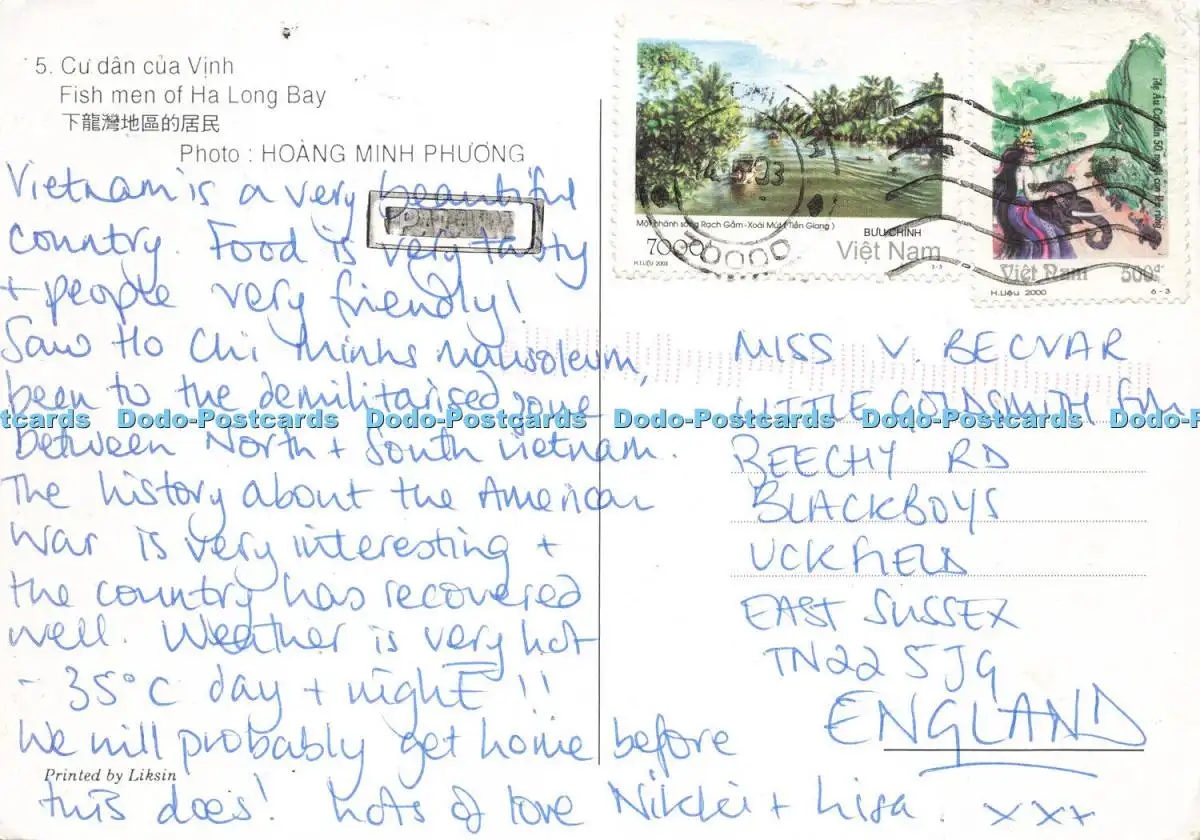 5. Cư dân của Vịnh
Fish men of Ha Long Bay
下龍灣地區的居民
Photo : HOÀNG MINH PHƯƠNG
Vietnam is a very beautiful
country. Food is very tasty
+ people very friendly!
Saw Ho Chi Minhs mausoleum,
been to the demilitarised zone
between North + South Vietnam.
The history about the American
War is very interesting +
the country has recovered
well. Weather is very hot
- 35°C day + night !!
We will probably get home before
this does! Lots of love Nikki + Lisa. xxx
Printed by Liksin
Một nhánh sông Rạch Gầm - Xoài Mút (Tiền Giang)
BƯU CHÍNH
7000đ Việt Nam
H.LIỆU 2003 3-3
Việt Nam 500đ
H.Liệu 2000 6-3
MISS V. BECVAR
LITTLE GOLDSMITH
BEECHY RD
BLACKBOYS
UCKFIELD
EAST SUSSEX
TN22 5JG
ENGLAND
Dodo-Postcards Dodo-Postcards Dodo-Postcards Dodo-Postcards